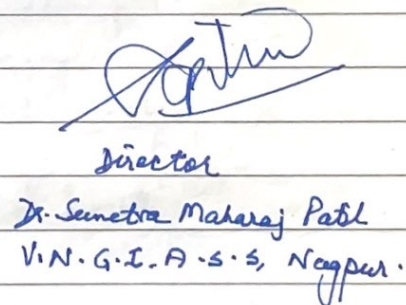 Director
Dr. Sunetra Maharaj Patil
V.N.G.I.A.S.S, Nagpur.